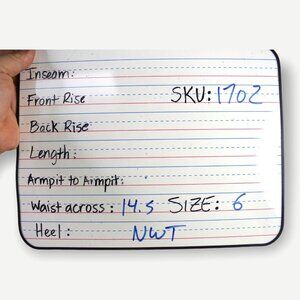 Inseam:
Front Rise SKU: 1702
Back Rise
Length:
Armpit to Aimpit:
Waist across: 14.5 SIZE: 6
Heel: NWT